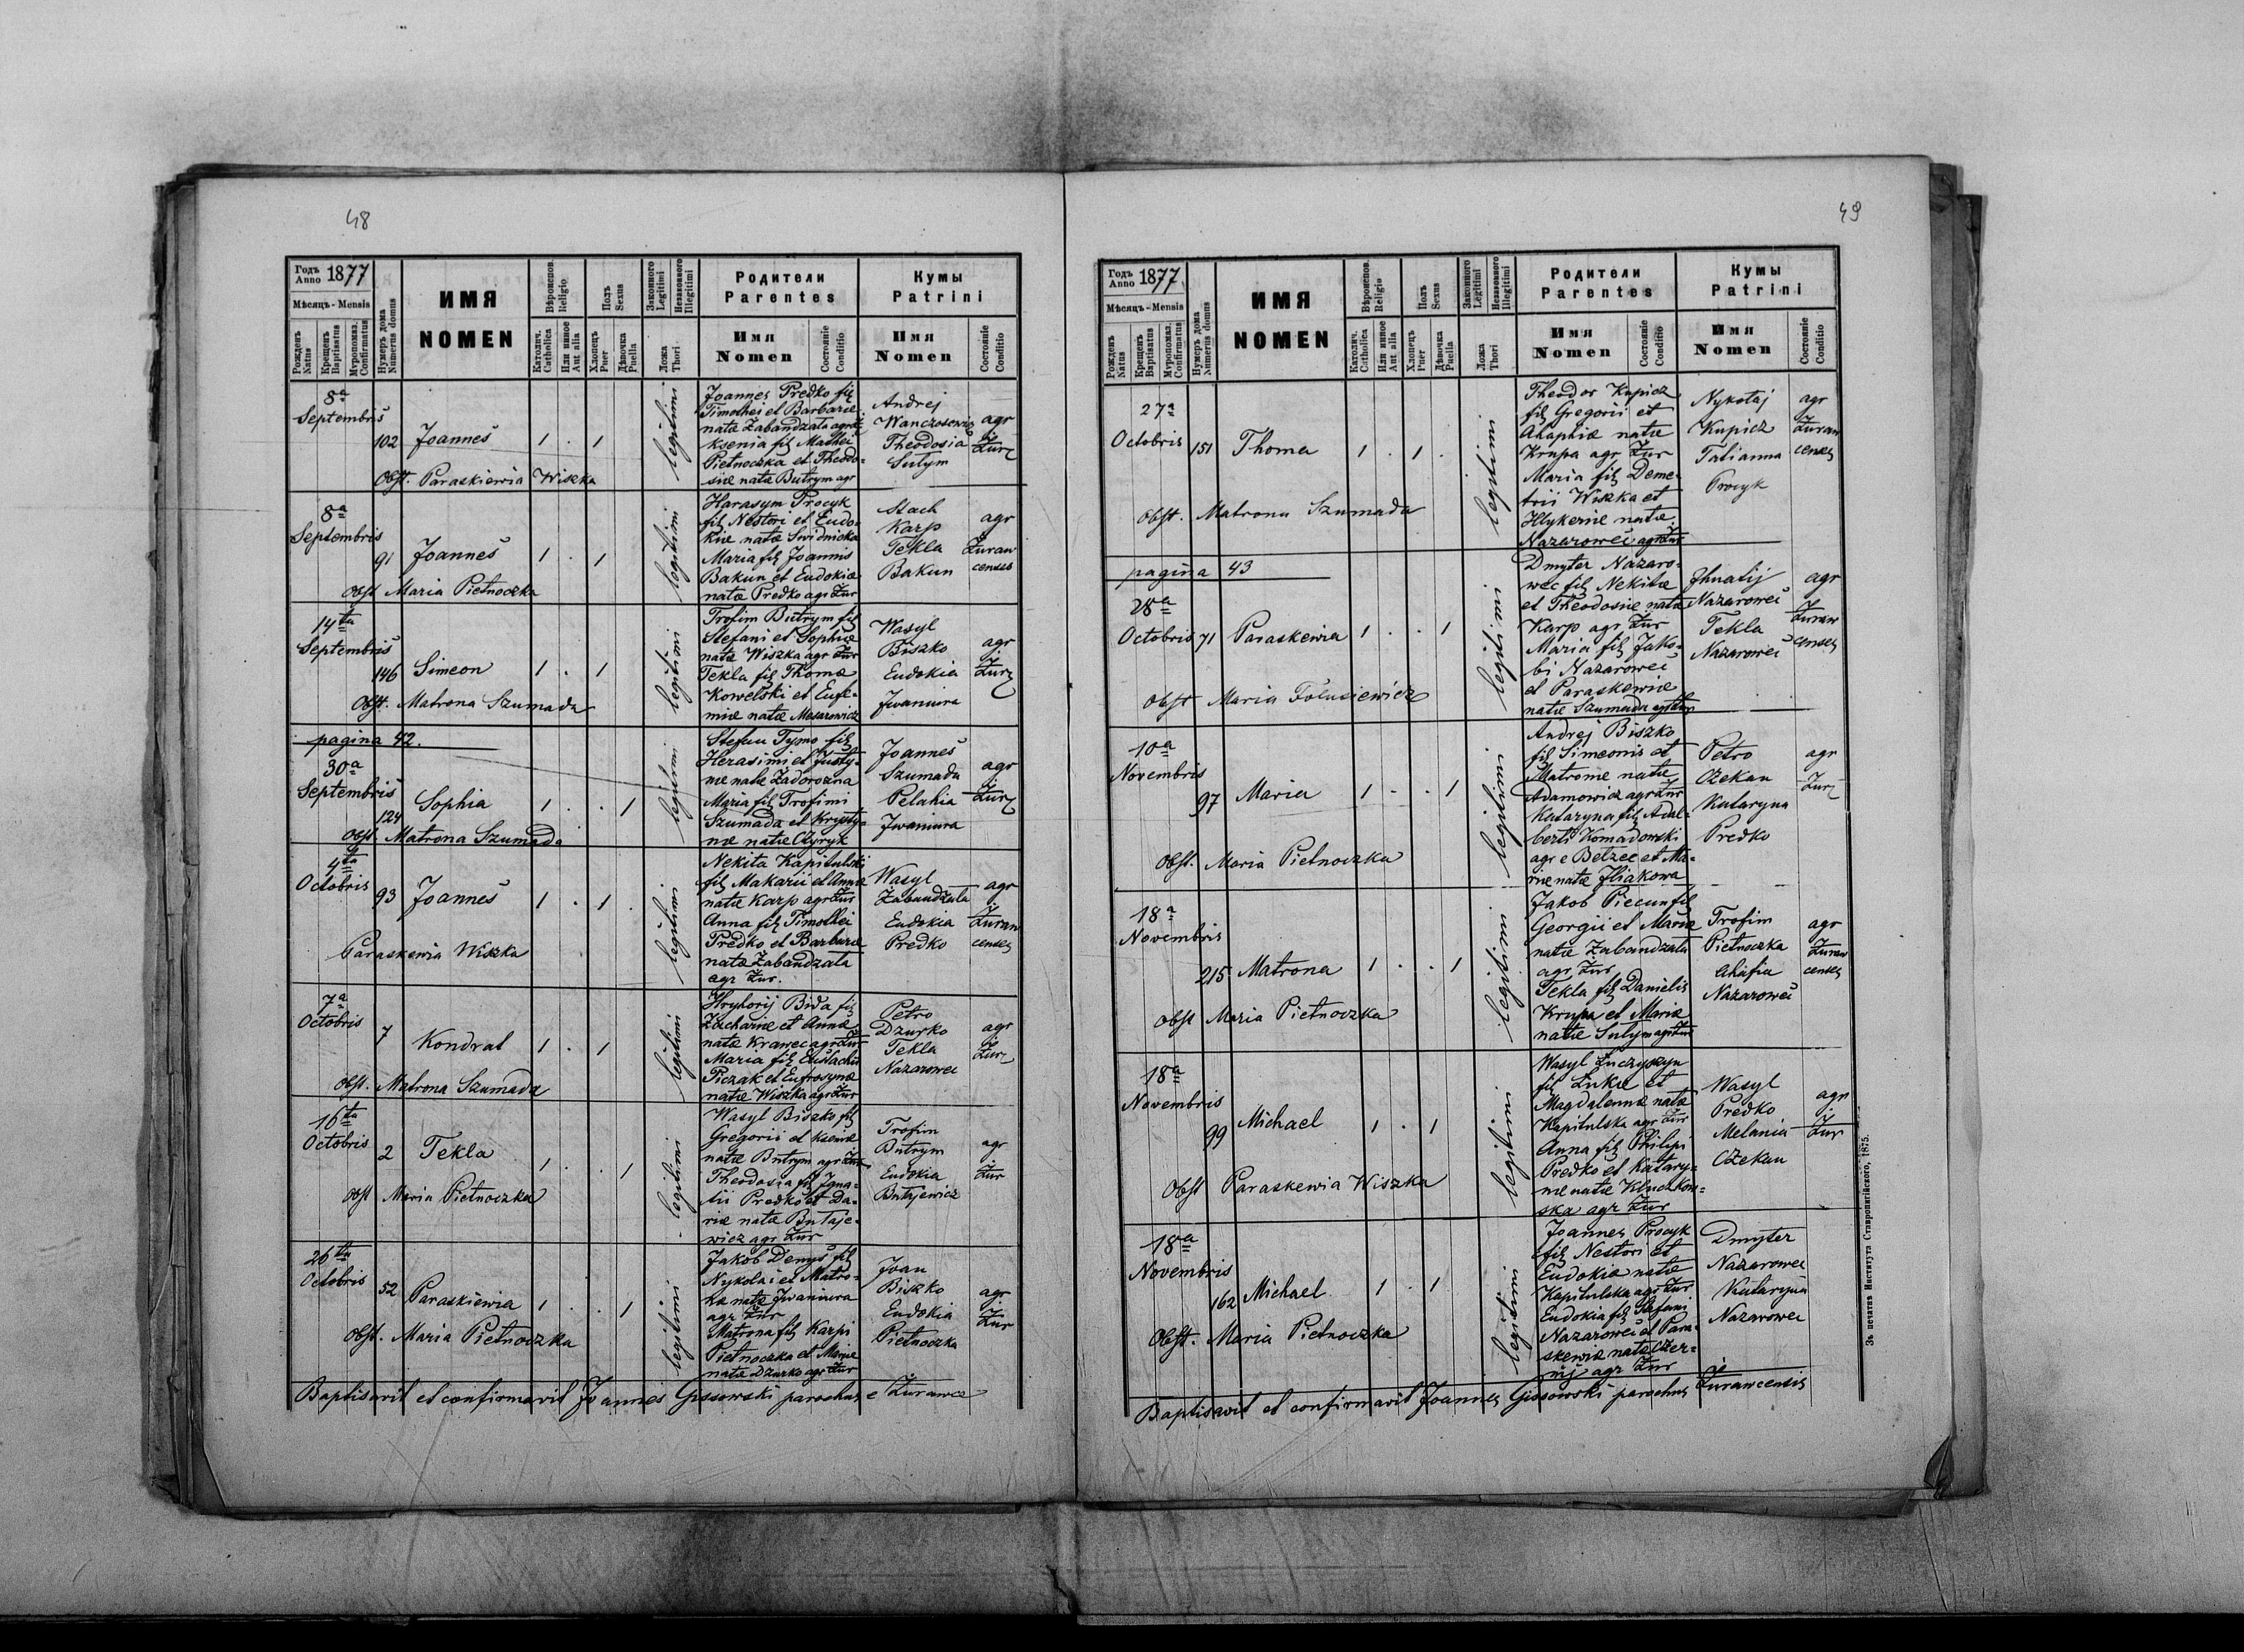 48
Годъ Anno 1877
Мѣсяцъ - Mensis
Рожденъ Natus
Крещенъ Baptisatus
Муропомаз. Confirmatus
Нумеръ дома Numerus domus
ИМЯ
NOMEN
Вѣроиспов. Religio
Католич. Catholica
Или инное Aut alia
Полъ Sexus
Хлопецъ Puer
Дѣвочка Puella
Законного Legitimi
Незаконного Illegitimi
Ложа Thori
Родители
Parentes
Имя
Nomen
Состояніе Conditio
Кумы
Patrini
Имя
Nomen
Состояніе Conditio
8a
Septembris
102 Joannes 1 . 1
legitimi
Joannes Predko fil
Timothei et Barbarae
natae Zabandzala agr
Ksenia fil Mathei
Pietnoczka et Theodo-
siae natae Butrym agr
Andrej
Theodosia
Sulym
agr
Żur
Obst. Paraskiewia Wiszka
8a
Septembris
91 Joannes 1 . 1
legitimi
Harasym Procyk
fil Nestori et Eudo-
kiae natae Swidnicka
Maria fil Joannis
Bakun et Eudokiae
natae Predko agr Żur
Stach
Karp
Tekla
Bakun
agr
Żuraw
censes
obst Maria Pietnoczka
14ta
Septembris
146 Simeon 1 . 1
legitimi
Trofim Butrym fil
Stefani et Sophiae
natae Wiszka agr Żur
Tekla fil Thomae
Kowelski et Eufe-
miae natae Mesarowicz
Wasyl
Biszko
Eudokia
Jwaniura
agr
Żur
Obst. Matrona Szumada
pagina 42.
30a
Septembris
124 Sophia 1 . . 1
legitimi
Stefan Tymo fil
Herasimi et Justy-
nae natae Zadorozna
Maria fil Trofimi
Szumada et Krysty-
nae natae Czyryk
Joannes
Szumada
Pelahia
Jwaniura
agr
Żur
obst. Matrona Szumada
4ta
Octobris
93 Joannes 1 . 1 .
legitimi
Nekita Kapitulski
fil Makarii et Annae
natae Karp agr Żur
Anna fil Timothei
Predko et Barbarae
natae Zabandzala
agr Żur.
Wasyl
Zabandzala
Eudokia
Predko
agr
Żuraw
censes
Paraskewia Wiszka
7a
Octobris
7 Kondrat 1 . 1
legitimi
Hryhorij Bida fil
Zachariae et Annae
natae Krawec agr Żur
Maria fil Eustachii
Piczak et Eufrosynae
natae Wiszka agr Żur
Petro
Dzurko
Tekla
Nazarowec
agr
Żur
obst. Matrona Szumada
16ta
Octobris
2 Tekla 1 . . 1
legitimi
Wasyl Biszko fil
Gregorii et Kseniae
natae Butrym agr Żur
Theodosia fil Igna-
tii Predko et Da-
riae natae Butaje-
wicz agr Żur
Trofim
Butrym
Eudokia
Butajewicz
agr
Żur
obst Maria Pietnoczka
26ta
Octobris
52 Paraskiewia 1 . . 1
legitimi
Jakob Denys fil
Nykolai et Matro-
nae natae Jwaniura
agr Żur
Matrona fil Karpi
Pietnoczka et Mariae
natae Dzurko agr Żur
Jvan
Biszko
Eudokia
Pietnoczka
agr
Żur
obst. Maria Pietnoczka
Baptisavit et confirmavit Joannes Gissowski parochus e Żurawce
49
Годъ Anno 1877
Мѣсяцъ - Mensis
Рожденъ Natus
Крещенъ Baptisatus
Муропомаз. Confirmatus
Нумеръ дома Numerus domus
ИМЯ
NOMEN
Вѣроиспов. Religio
Католич. Catholica
Или инное Aut alia
Полъ Sexus
Хлопецъ Puer
Дѣвочка Puella
Законного Legitimi
Незаконного Illegitimi
Ложа Thori
Родители
Parentes
Имя
Nomen
Состояніе Conditio
Кумы
Patrini
Имя
Nomen
Состояніе Conditio
27a
Octobris 151 Thoma 1 . 1 .
legitimi
Theodor Kupicz
fil Gregorii et
Ahaphiae natae
Krupa agr Żur
Maria fil Deme-
trii Wiszka et
Hlykeriae natae
Nazarowec agr Żur
Nykołaj
Kupicz
Tatianna
Procyk
agr
Żuraw
censes
obst. Matrona Szumada
pagina 43
28a
Octobris 71 Paraskewia 1 . . 1
legitimi
Dmyter Nazaro-
wec fil Nekitae
et Theodosiae natae
Karp agr Żur
Maria fil Jako-
bi Nazarowec
et Paraskewiae
natae Szumada agr Żur
Jhnatij
Nazarowec
Tekla
Nazarowec
agr
Żuraw
censes
obst Maria
10a
Novembris
97 Maria 1 . . 1
legitimi
Andrej Biszko
fil Simeonis et
Matronae natae
Adamowicz agr Żur
Kataryna fil Adal-
berti Komadowski
agr e Belzec et Ma-
riae natae Jliakowa
Petro
Czekan
Kataryna
Predko
agr
Żur
obst. Maria Pietnoczka
18a
Novembris
215 Matrona 1 . . 1
legitimi
Jakob Piecun fil
Georgii et Mariae
natae Zabandzala
agr Żur
Tekla fil Danielis
Krupa et Mariae
natae Sulym agr Żur
Trofim
Pietnoczka
Ahafia
Nazarowec
agr
Żuraw
censes
obst Maria Pietnoczka
18a
Novembris
99 Michael 1 . 1
legitimi
Wasyl Łuczyszyn
fil Lukae et
Magdalenae natae
Kapitulska agr Żur
Anna fil Philipi
Predko et Katary-
nae natae Kluczkow-
ska agr Żur
Wasyl
Predko
Melania
Czekan
agr
Żur
Obst Paraskewia Wiszka
18va
Novembris
162 Michael 1 . 1
legitimi
Joannes Procyk
fil Nestori et
Eudokiae natae
Kapitulska agr Żur
Eudokia fil Stefani
Nazarowec et Para-
skewiae natae Czer-
nij agr Żur
Dmyter
Nazarowec
Kataryna
Nazarowec
Obst. Maria Pietnoczka
Baptisavit et confirmavit Joannes Gissowski parochus Żurawcensis
Зъ печатнѣ Института Ставропигійского, 1875.